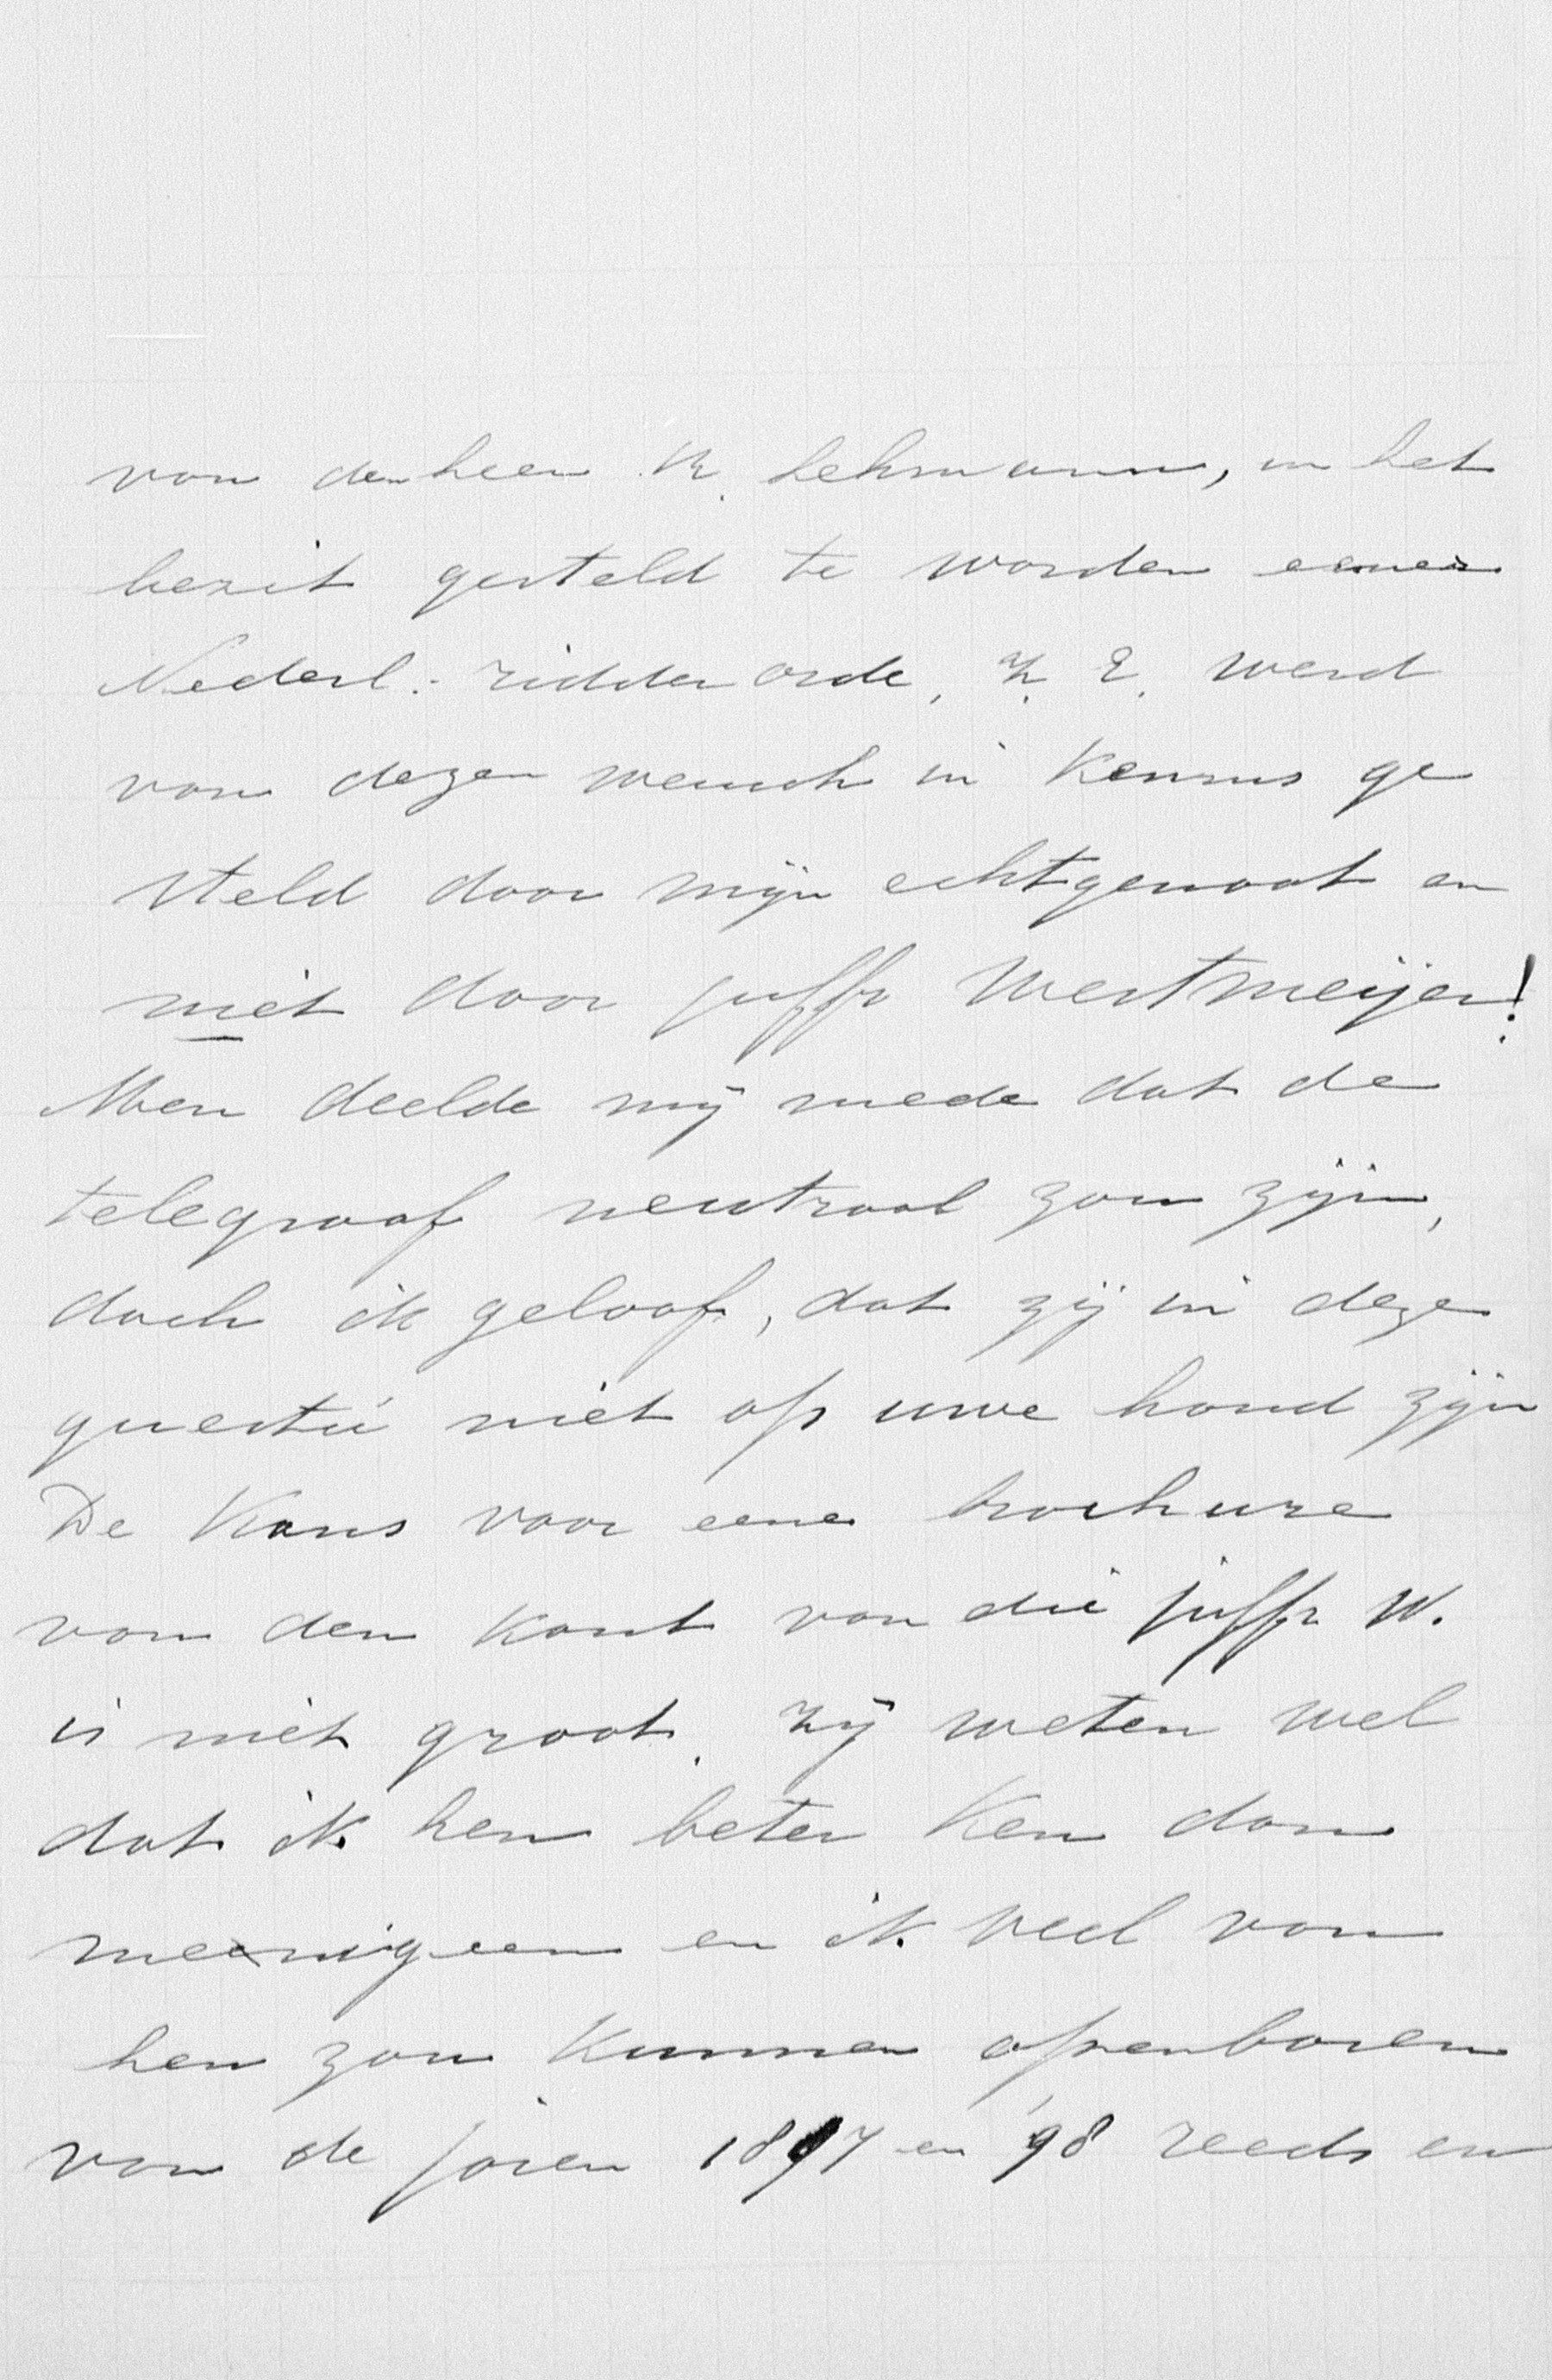 van den heer R. Lehmann, in het
bezit gesteld te worden eener
Nederl: ridder orde, Z. E. werd
van dezen wensch in kennis ge
steld door mijn echtgenoot en
niet door juffr Westmeijer!
Men deelde mij mede dat de
telegraaf neutraal zou zijn,
doch ik geloof, dat zij in deze
questie niet op uwe hand zijn
De kans voor eene brochure
van den kant van die juffr W.
is niet groot. Zij weten wel
dat ik hen beter ken dan
meenigeen en ik veel van
hen zou kunnen openbaren
van de jaren 1897 en '98 reeds en